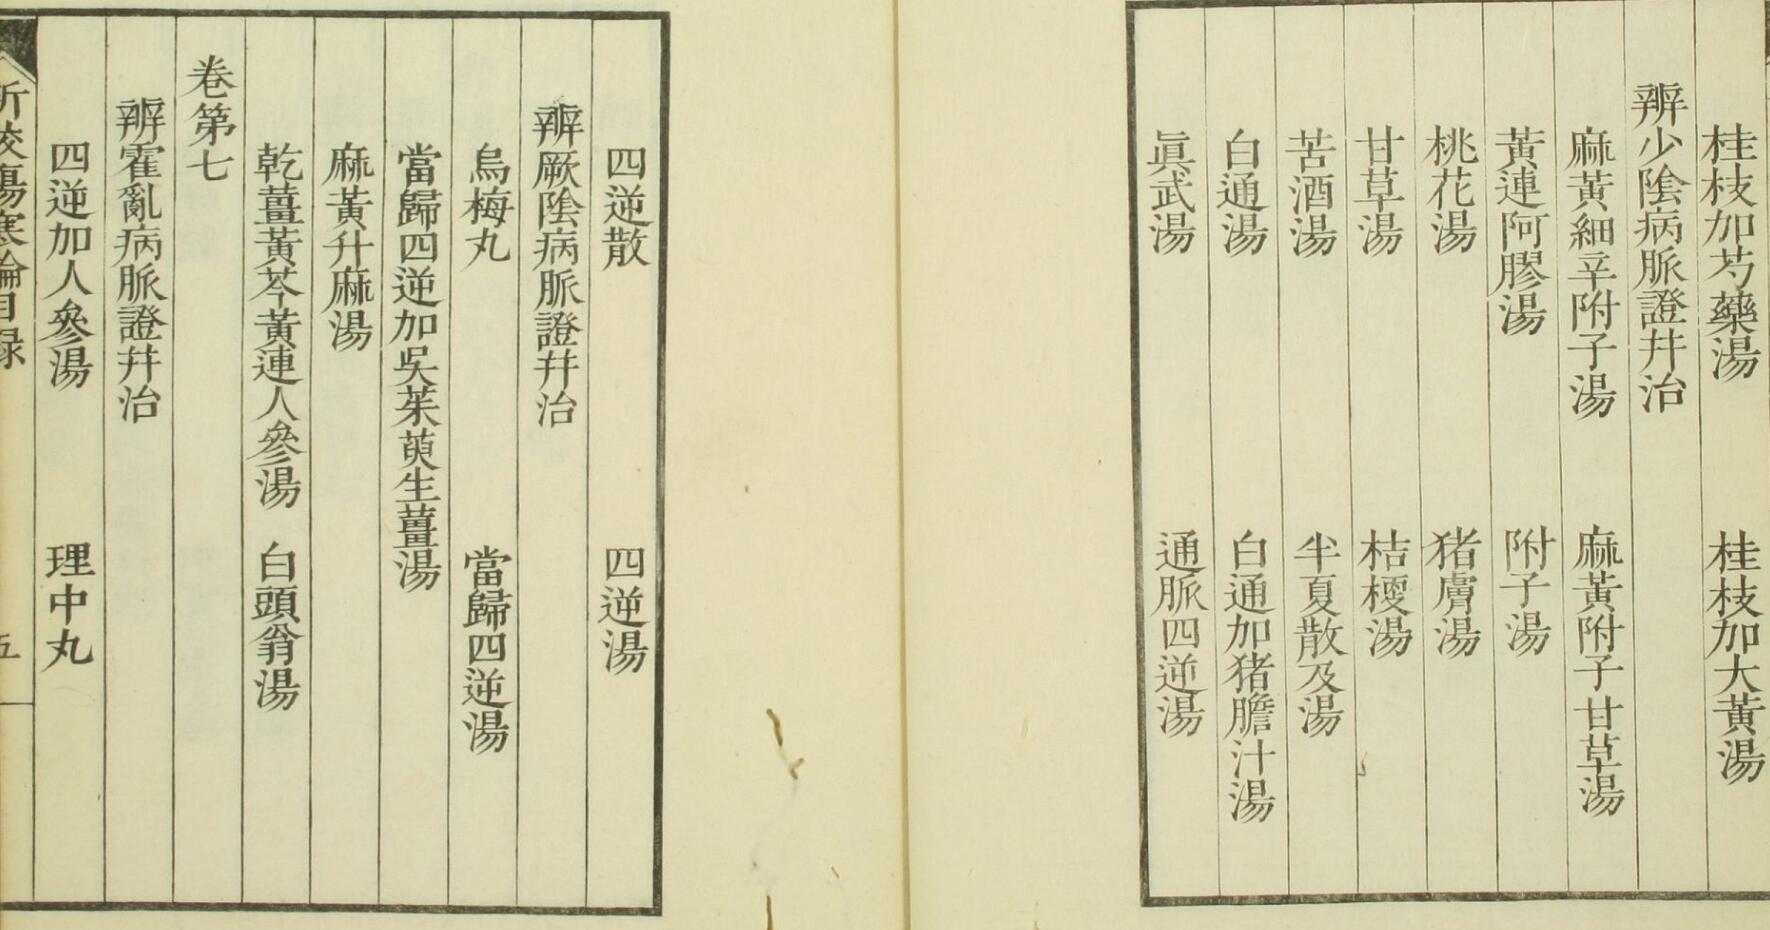 桂枝加芍藥湯 桂枝加大黃湯
辨少陰病脈證幷治
麻黃細辛附子湯 麻黃附子甘草湯
黃連阿膠湯 附子湯
桃花湯 猪膚湯
甘草湯 桔梗湯
苦酒湯 半夏散及湯
白通湯 白通加猪膽汁湯
眞武湯 通脈四逆湯
四逆散 四逆湯
辨厥陰病脈證幷治
烏梅丸 當歸四逆湯
當歸四逆加吳茱萸生薑湯
麻黃升麻湯
乾薑黃芩黃連人參湯 白頭翁湯
卷第七
辨霍亂病脈證幷治
四逆加人參湯 理中丸
校傷寒論目録 五